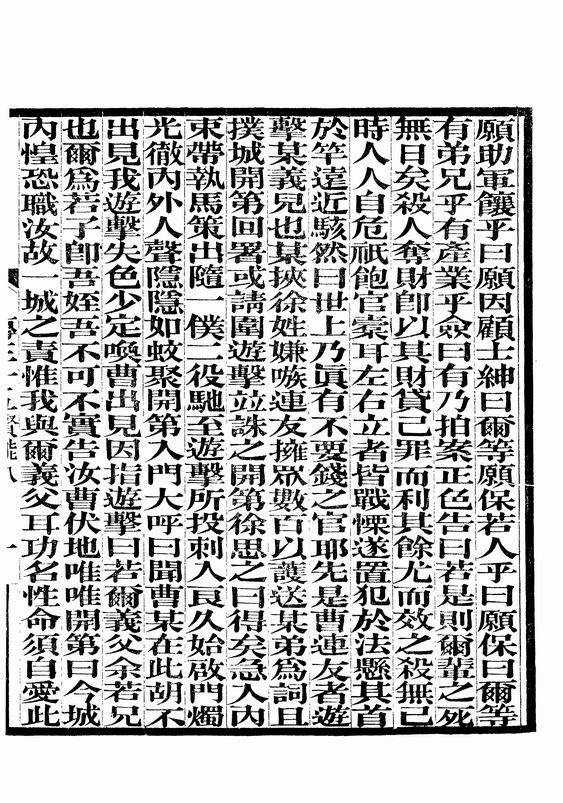 願助軍饟乎曰願因顧士紳曰爾等願保若人乎曰願保曰爾等
有弟兄乎有產業乎僉曰有乃拍案正色告曰若是則爾輩之死
無日矣殺人奪財卽以其財貸己罪而利其餘尤而效之殺無已
時人人自危祇飽官橐耳左右立者皆戰慄遂置犯於法懸其首
於竿遠近駭然曰世上乃眞有不要錢之官耶先是曹連友者遊
擊某義兄也某挾徐姓嫌嗾連友擁眾數百以護送某弟爲詞且
撲城開第回署或請圍遊擊並誅之開第徐思之曰得矣急入內
束帶執馬策出隨一僕二役馳至遊擊所投刺入良久始啟門燭
光徹內外人聲隱隱如蚊聚開第入門大呼曰聞曹某在此胡不
出見我遊擊失色少定喚曹出見因指遊擊曰若爾義父余若兄
也爾爲若子卽吾姪吾不可不實告汝曹伏地唯唯開第曰今城
內惶恐職汝故一城之責惟我與爾義父耳功名性命須自愛此